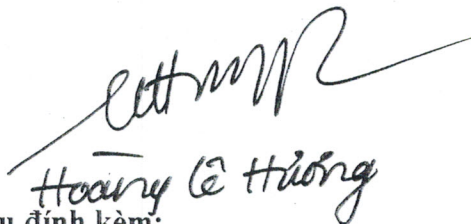 Hoàng Lê Hương
u đính kèm: